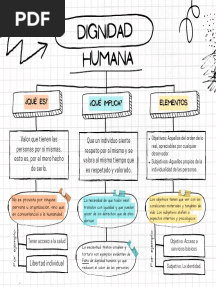 PDF
DIGNIDAD
HUMANA
¿QUÉ ES?
¿QUÉ IMPLICA?
ELEMENTOS
Valor que tienen las
personas por sí mismas,
esto es, por el mero hecho
de serlo.
Que un individuo sienta
respeto por sí mismo y se
valore al mismo tiempo que
es respetado y valorado.
Objetivos: Aquellos del orden de lo
real, apreciados por cualquier
observador.
Subjetivos: Aquellos propios de la
individualidad de las personas.
No es provista por ninguna
persona u organización, sino que
es consustancial a la humanidad.
La necesidad de que todos sean
tratados con igualdad y que puedan
gozar de los derechos que de ellos
Los objetivos tienen que ver con las
condiciones materiales y tangibles de
vida. Los subjetivos aluden a
aspectos internos y psicológicos.
Tener acceso a la salud
Libertad individual
La esclavitud
tortura son ejemplos evidentes de
falta de dignidad humana ya que
reducen el valor de las personas
Objetivo: Acceso a
servicios básicos
Subjetivo: La identidad